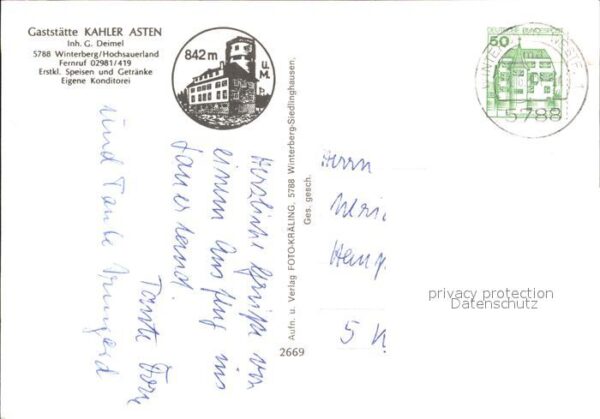 Gaststätte KAHLER ASTEN
Inh. G. Deimel
5788 Winterberg/Hochsauerland
Fernruf 02981/419
Erstkl. Speisen und Getränke
Eigene Konditorei
842 m
ü. M.
Herzliche Grüße von
einem Ausflug ins
Sauerland
Tante
und Tante Irmgard
Aufn. u. Verlag FOTO-KRÄLING, 5788 Winterberg-Siedlinghausen,
Ges. gesch.
2669
50
DEUTSCHE BUNDESPOST
5788
Herrn
5 K
privacy protection
Datenschutz